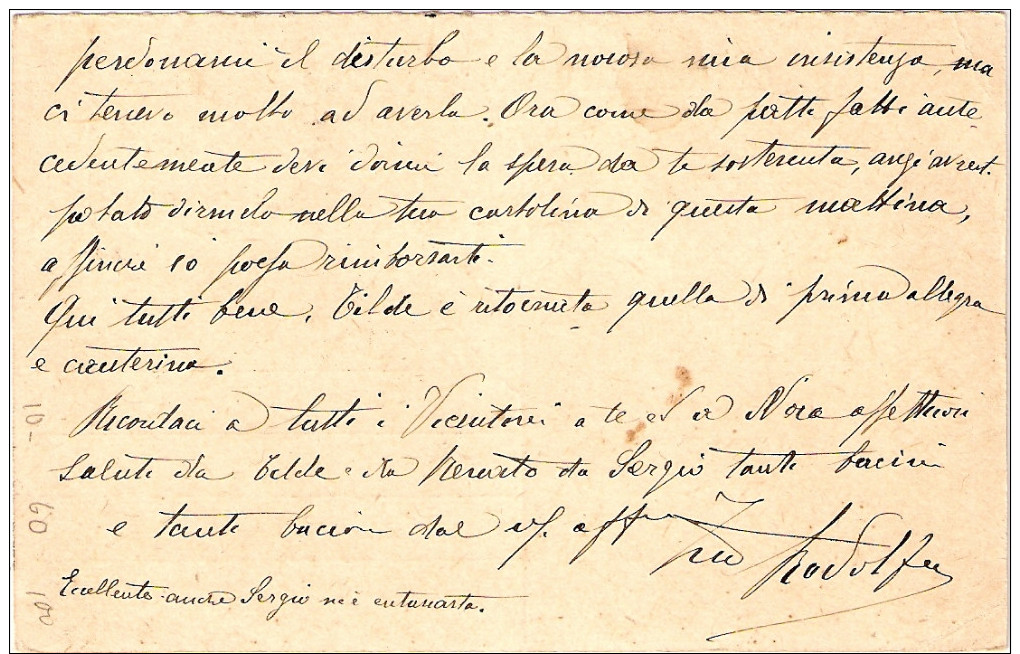 perdonami il disturbo e la noiosa mia insistenza, ma
ci tenevo molto ad averla. Ora come da patti fatti ante
cedentemente devi dirmi la spesa da te sostenuta, anzi avrest.
potuto dirmelo nella tua cartolina di questa mattina,
affinché io possa rimborsarti.
Qui tutti bene, Tilde è ritornata quella di prima allegra
e canterina.
Ricordaci a tutti i a te ed a Nora affettuosi
saluti da Tilde e da Renato da Sergio tanti bacini
e tanti bacioni dal vs. aff.
Zio Rodolfo
Eccellente anche Sergio n'è entusiasta.
102 09 -01